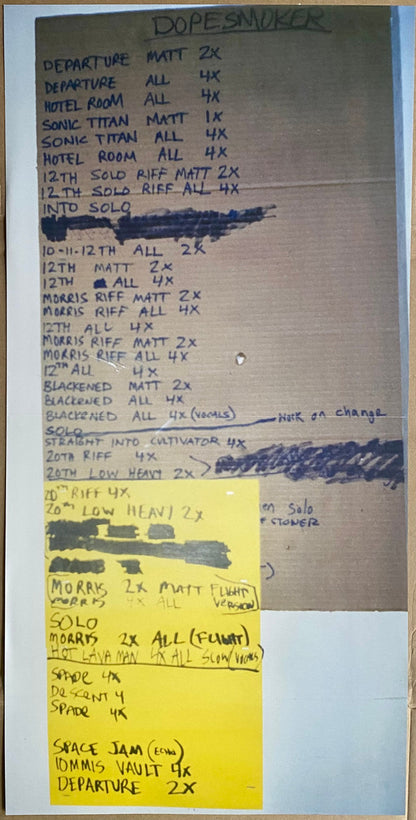 DOPESMOKER
DEPARTURE MATT 2X
DEPARTURE ALL 4X
HOTEL ROOM ALL 4X
SONIC TITAN MATT 1X
SONIC TITAN ALL 4X
HOTEL ROOM ALL 4X
12TH SOLO RIFF MATT 2X
12TH SOLO RIFF ALL 4X
INTO SOLO
10-11-12TH ALL 2X
12TH MATT 2X
12TH ALL 4X
MORRIS RIFF MATT 2X
MORRIS RIFF ALL 4X
12TH ALL 4X
MORRIS RIFF MATT 2X
MORRIS RIFF ALL 4X
12TH ALL 4X
BLACKENED MATT 2X
BLACKENED ALL 4X
BLACKENED ALL 4X (VOCALS)
SOLO Work on change
STRAIGHT INTO CULTIVATOR 4X
20TH RIFF 4X
20TH LOW HEAVY 2X
20TH RIFF 4X
20TH LOW HEAVY 2X
Solo
STONER
MORRIS 2X MATT FLIGHT VERSION
MORRIS 4X ALL
SOLO
MORRIS 2X ALL (FLIGHT)
HOT LAVA MAN 4X ALL SLOW (VOCALS)
SPADE 4X
DESCENT 4
SPADE 4X
SPACE JAM (ECHO)
IOMMIS VAULT 4X
DEPARTURE 2X